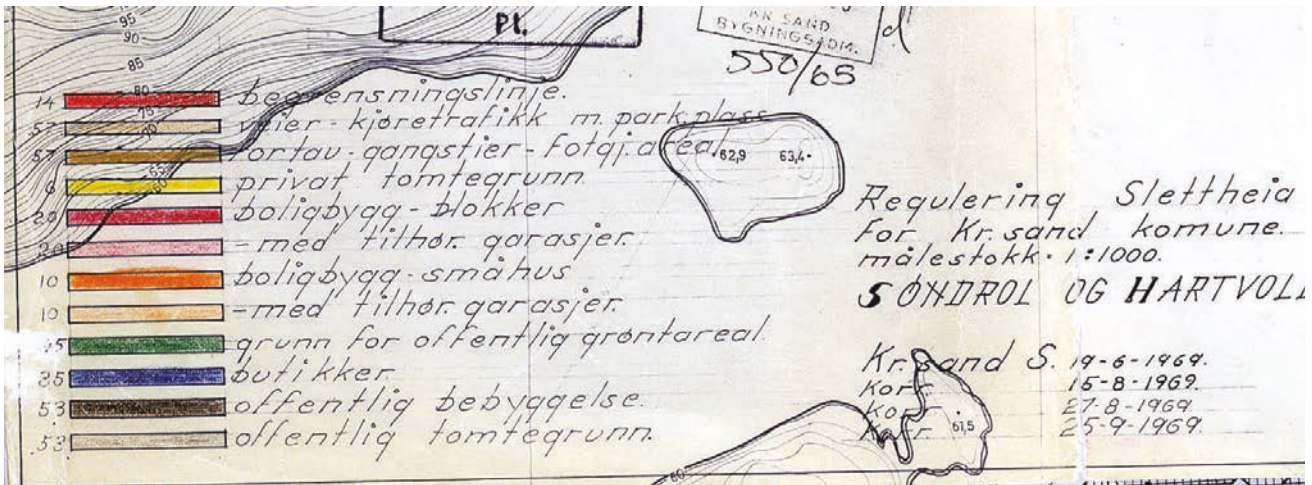 95
90
85
80
75
70
65
60
Pl.
KR. SAND
BYGNINGSADM.
550/65
14 begrensningslinje.
57 veier - kjøretrafikk m. park.plass
57 fortau - gangstier - fotgj. areal
8 privat tomtegrunn
20 boligbygg - blokker
20 - med tilhør. garasjer.
10 boligbygg - småhus
10 - med tilhør. garasjer.
45 grunn for offentlig grøntareal
35 butikker
53 offentlig bebyggelse.
53 offentlig tomtegrunn.
62,9 63,4
Regulering Slettheia
for Kr.sand komune.
målestokk · 1:1000.
SØNDROL OG HARTVOLL
Kr.sand S. 19-6-1969.
korr. 15-8-1969.
korr. 27-8-1969.
korr. 25-9-1969.
61,5
60